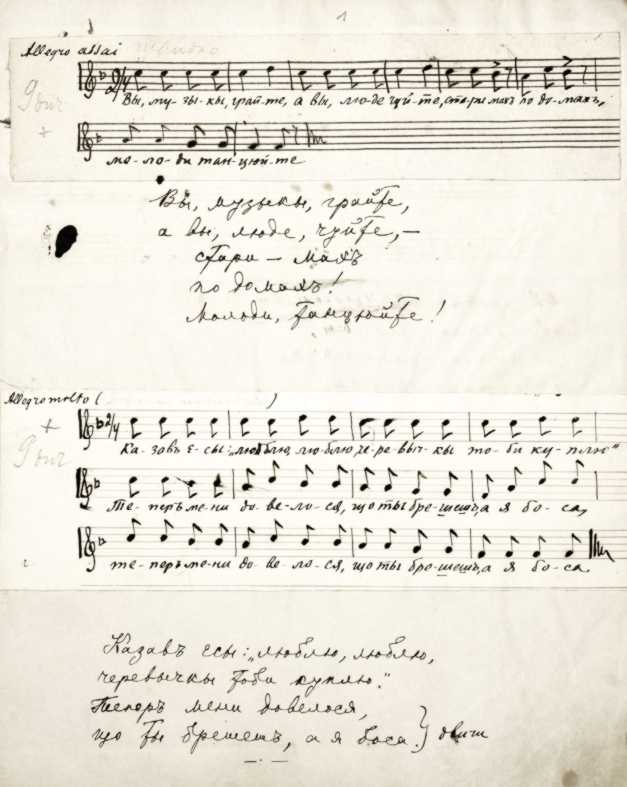 1
Allegro assai
2/4
Вы, му-зы-кы, грай-те, а вы, лю-де чуй-те, ста-ри махъ по до-махъ,
+
мо-ло-ди тан-цюй-те
Вы, музыкы, грайте,
а вы, люде, чуйте, –
стари – махъ
по домахъ!
Молоди, танцюйте!
Allegro molto ( )
+
2/4
Ка-завъ е-сы: „люблю, лю-блю, че-ре-выч-кы то-би ку-плю"
Те-перъ ме-ни до-ве-ло-ся, що ты бре-шешъ, а я бо-са,
те-перъ ме-ни до-ве-ло-ся, що ты бре-шешъ, а я бо-са.
Казавъ есы: „люблю, люблю,
черевычкы тоби куплю."
Теперъ мени довелося,
що ты брешешъ, а я боса.} двичи